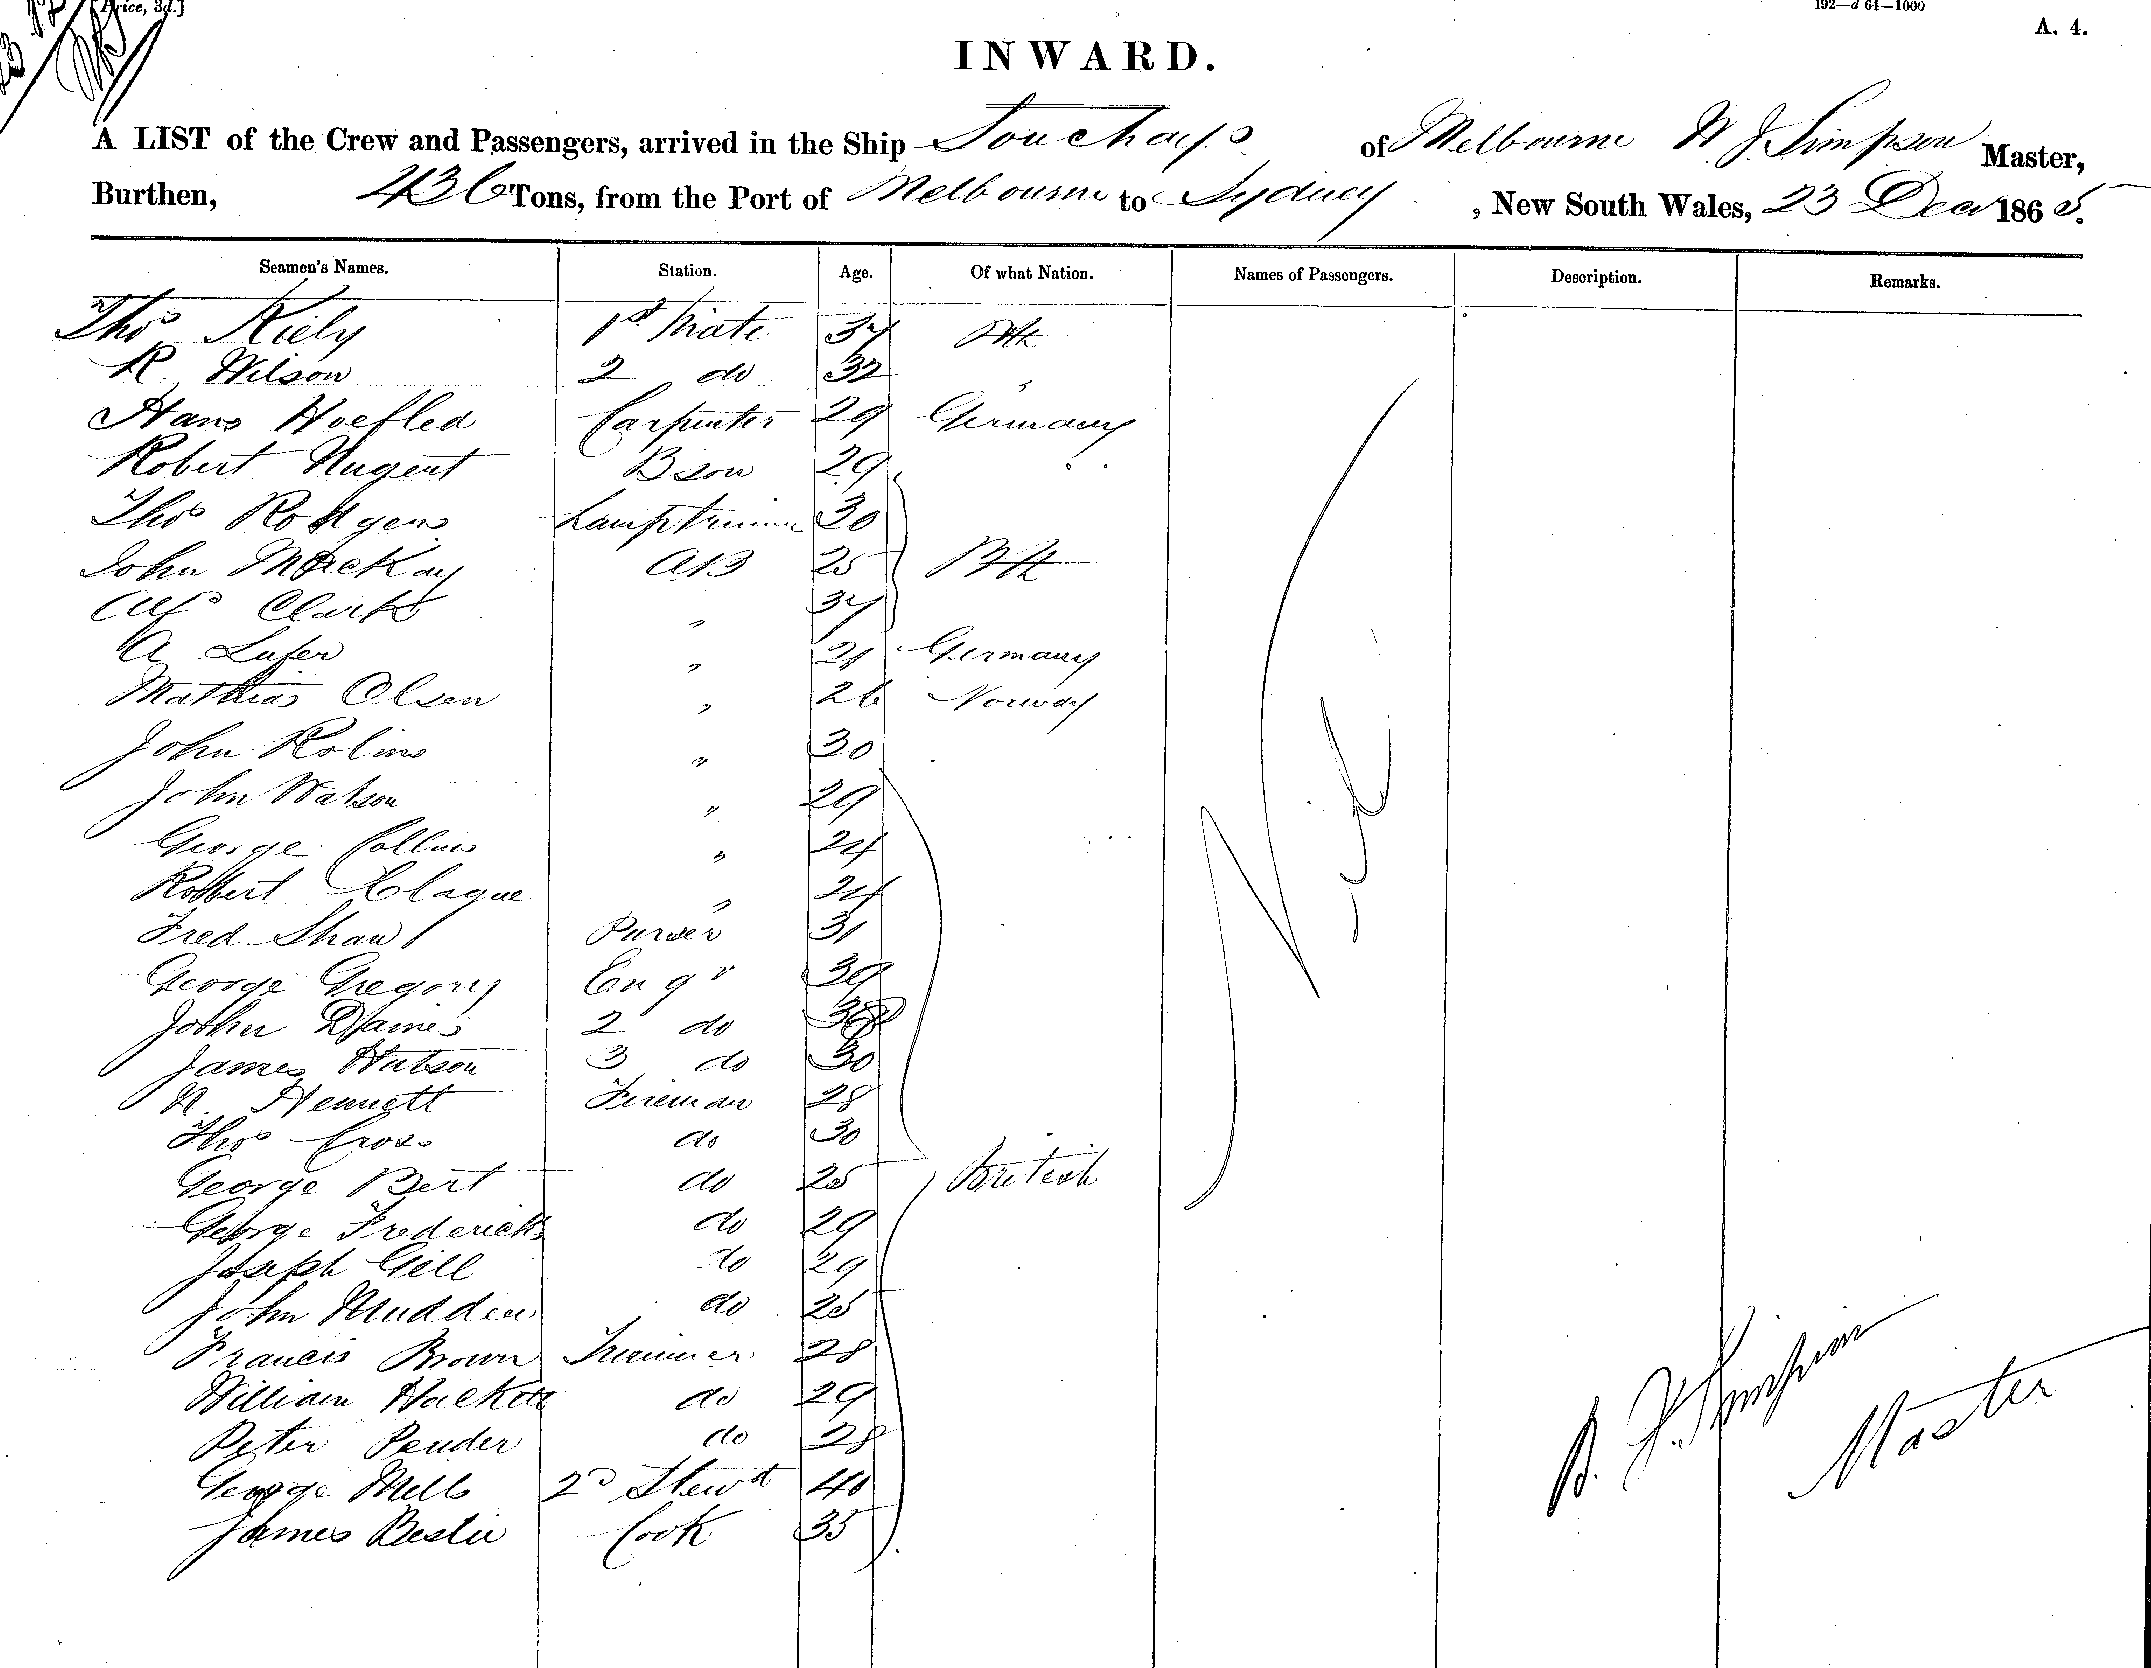 Price, 3d.]
192—d 64—1000
A. 4.
INWARD.
A LIST of the Crew and Passengers, arrived in the Ship of Melbourne W J Simpson Master,
Burthen, 436 Tons, from the Port of Melbourne to Sydney, New South Wales, 23 Decr 1865.
Seamen's Names. Station. Age. Of what Nation. Names of Passengers. Description. Remarks.
Thos Kiely 1st Mate 37
R Wilson 2 do 32 "
Hans Hoefled Carpenter 29 Germany
Robert Nugent Bson 29
Thos Rodgers Lamptrimmer 30
John MacKay AB 25
Clark " 37
A " 21 Germany
Mathias Olsen " 26 Norway
John Rolins " 30
John Watson " 29
George Collins " 24
Robert Clague " 24
Fred Shaw Purser 31
George Gregory Engr 39
John 2 do
James Hutson 3 do 30
Hennett Fireman 28
Thos Cross do 30
George Bert do 25 British
George Fredericks do 29
Joseph Gill do 29
John Mudden do 25
Francis Brown Trimmer 28
William Hackett do 29
Peter Pender do 28
George Mells 2d Stewd 40
James Cook 35
Nil
Simpson
Master